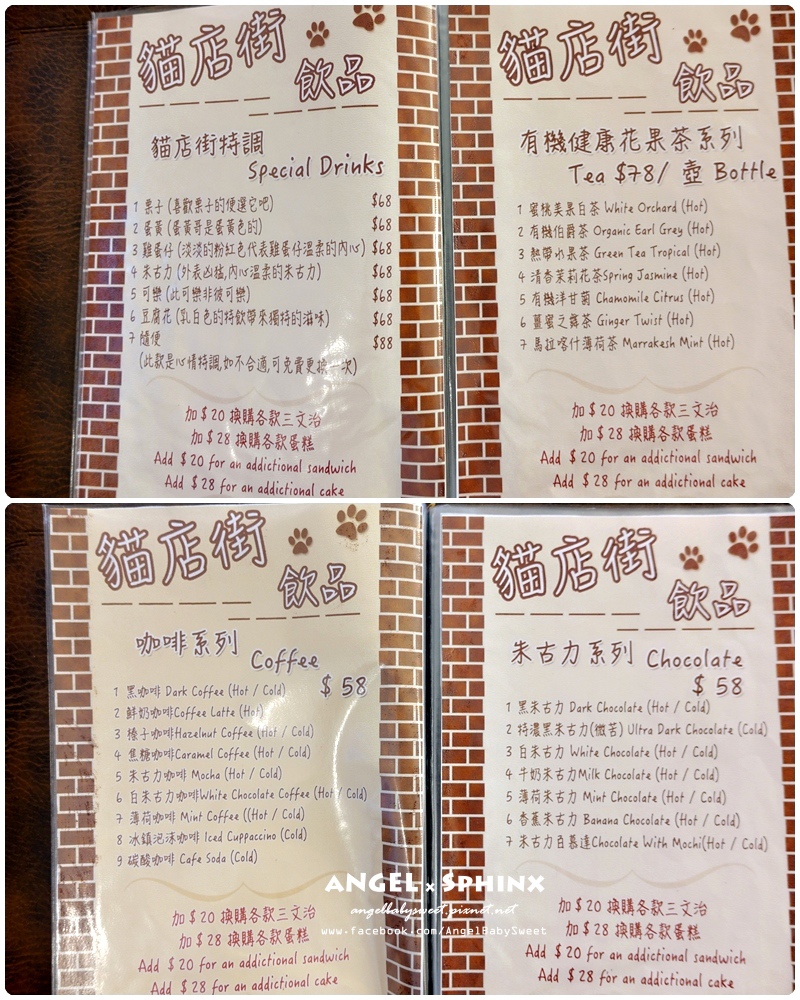 貓店街
飲品
貓店街特調
Special Drinks
1 栗子 (喜歡栗子的便選它吧) $68
2 蛋黃 (蛋黃哥是蛋黃色的) $68
3 雞蛋仔 (淡淡的粉紅色代表雞蛋仔溫柔的內心) $68
4 朱古力 (外表凶猛,內心溫柔的朱古力) $68
5 可樂 (此可樂非彼可樂) $68
6 豆腐花 (乳白色的特飲帶來獨特的滋味) $68
7 隨便 $88
(此款是心情特調,如不合適,可免費更換一次)
加$20 換購各款三文治
加$28 換購各款蛋糕
Add $20 for an addictional sandwich
Add $28 for an addictional cake
貓店街
飲品
有機健康花果茶系列
Tea $78/ 壺 Bottle
1 蜜桃美果白茶 White Orchard (Hot)
2 有機伯爵茶 Organic Earl Grey (Hot)
3 熱帶水果茶 Green Tea Tropical (Hot)
4 清香茉莉花茶Spring Jasmine (Hot)
5 有機洋甘菊 Chamomile Citrus (Hot)
6 薑蜜之露茶 Ginger Twist (Hot)
7 馬拉喀什薄荷茶 Marrakesh Mint (Hot)
加$20 換購各款三文治
加$28 換購各款蛋糕
Add $20 for an addictional sandwich
Add $28 for an addictional cake
貓店街
飲品
咖啡系列
Coffee
$ 58
1 黑咖啡 Dark Coffee (Hot / Cold)
2 鮮奶咖啡Coffee Latte (Hot)
3 榛子咖啡Hazelnut Coffee (Hot / Cold)
4 焦糖咖啡Caramel Coffee (Hot / Cold)
5 朱古力咖啡 Mocha (Hot / Cold)
6 白朱古力咖啡White Chocolate Coffee (Hot / Cold)
7 薄荷咖啡 Mint Coffee ((Hot / Cold)
8 冰鎮泡沫咖啡 Iced Cuppaccino (Cold)
9 碳酸咖啡 Cafe Soda (Cold)
加$20 換購各款三文治
加$28 換購各款蛋糕
Add $20 for an addictional sandwich
Add $28 for an addictional cake
貓店街
飲品
朱古力系列 Chocolate
$ 58
1 黑朱古力 Dark Chocolate (Hot / Cold)
2 特濃黑朱古力(微苦) Ultra Dark Chocolate (Cold)
3 白朱古力 White Chocolate (Hot / Cold)
4 牛奶朱古力Milk Chocolate (Hot / Cold)
5 薄荷朱古力 Mint Chocolate (Hot / Cold)
6 香蕉朱古力 Banana Chocolate (Hot / Cold)
7 朱古力百慕達Chocolate With Mochi(Hot / Cold)
加$20 換購各款三文治
加$28 換購各款蛋糕
Add $20 for an addictional sandwich
Add $28 for an addictional cake
ANGEL x SPHINX
angelbabysweet.pixnet.net
www.facebook.com/AngelBabySweet